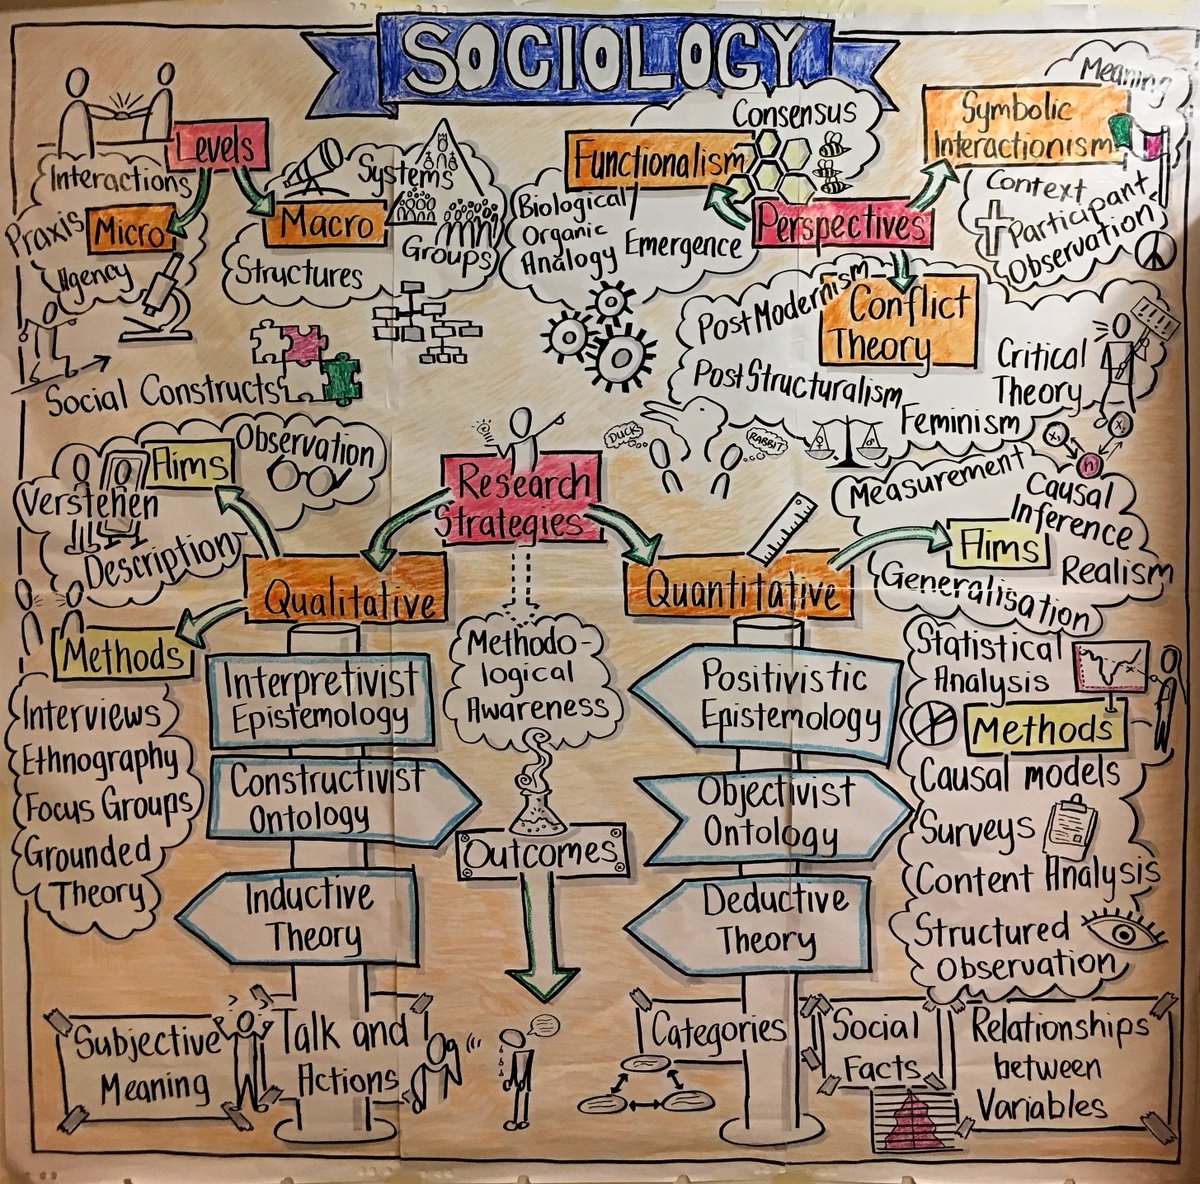 SOCIOLOGY
Levels
Interactions
Praxis
Micro
Agency
Macro
Systems
Structures
Groups
Social Constructs
Perspectives
Functionalism
Consensus
Biological/
Organic
Analogy
Emergence
Symbolic
Interactionism
Meaning
Context
Participant
Observation
Conflict
Theory
Post Modernism
Post Structuralism
Feminism
Critical
Theory
DUCK
RABBIT
Research
Strategies
Qualitative
Aims
Observation
Verstehen
Description
Methods
Interviews
Ethnography
Focus Groups
Grounded
Theory
Interpretivist
Epistemology
Constructivist
Ontology
Inductive
Theory
Methodo-
logical
Awareness
Outcomes
Subjective
Meaning
Talk and
Actions
Quantitative
Aims
Measurement
Causal
Inference
Realism
Generalisation
Methods
Statistical
Analysis
Causal models
Surveys
Content Analysis
Structured
Observation
Positivistic
Epistemology
Objectivist
Ontology
Deductive
Theory
Categories
Social
Facts
Relationships
between
Variables